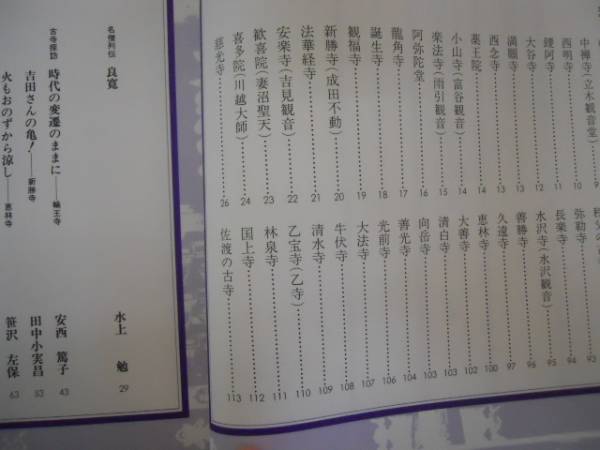 中禅寺(立木観音堂)……9
西明寺……10
鑁阿寺……11
大谷寺……12
満願寺……13
西念寺……13
薬王院……14
小山寺(富谷観音)……14
楽法寺(雨引観音)……15
阿弥陀堂……16
龍角寺……17
誕生寺……18
観福寺……19
新勝寺(成田不動)……20
法華経寺……21
安楽寺(吉見観音)……22
歓喜院(妻沼聖天)……23
喜多院(川越大師)……24
慈光寺……26
弥勒寺……93
長楽寺……94
水沢寺(水沢観音)……95
善勝寺……96
久遠寺……97
恵林寺……100
大善寺……102
清白寺……103
向岳寺……103
善光寺……104
光前寺……106
大法寺……107
牛伏寺……108
清水寺……109
乙宝寺(乙寺)……110
林泉寺……111
国上寺……112
佐渡の古寺……113
名僧列伝 良寛 水上 勉 29
古寺探訪 時代の変遷のままに——輪王寺 安西篤子 43
吉田さんの亀!——新勝寺 田中小実昌 53
火もおのずから涼し——恵林寺 笹沢左保 63